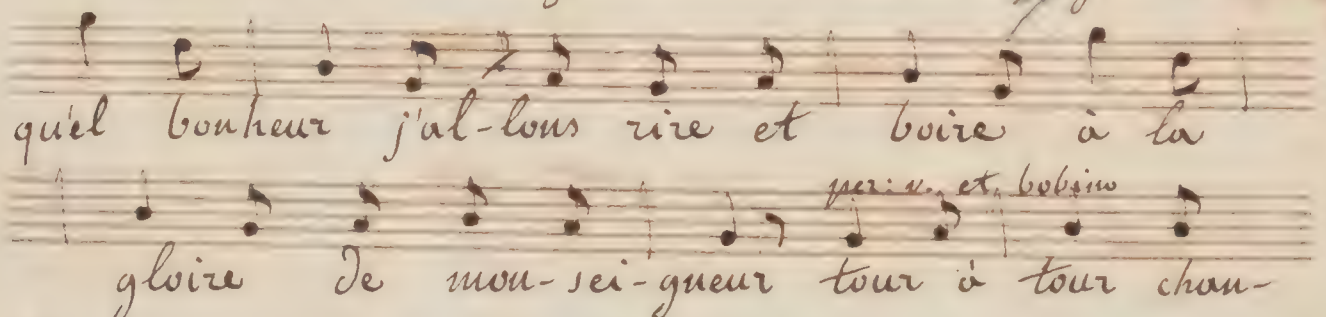 qu'el bonheur j'al-lons rire et boire à la
et bobino
gloire de mon-sei-gneur tour à tour chan-